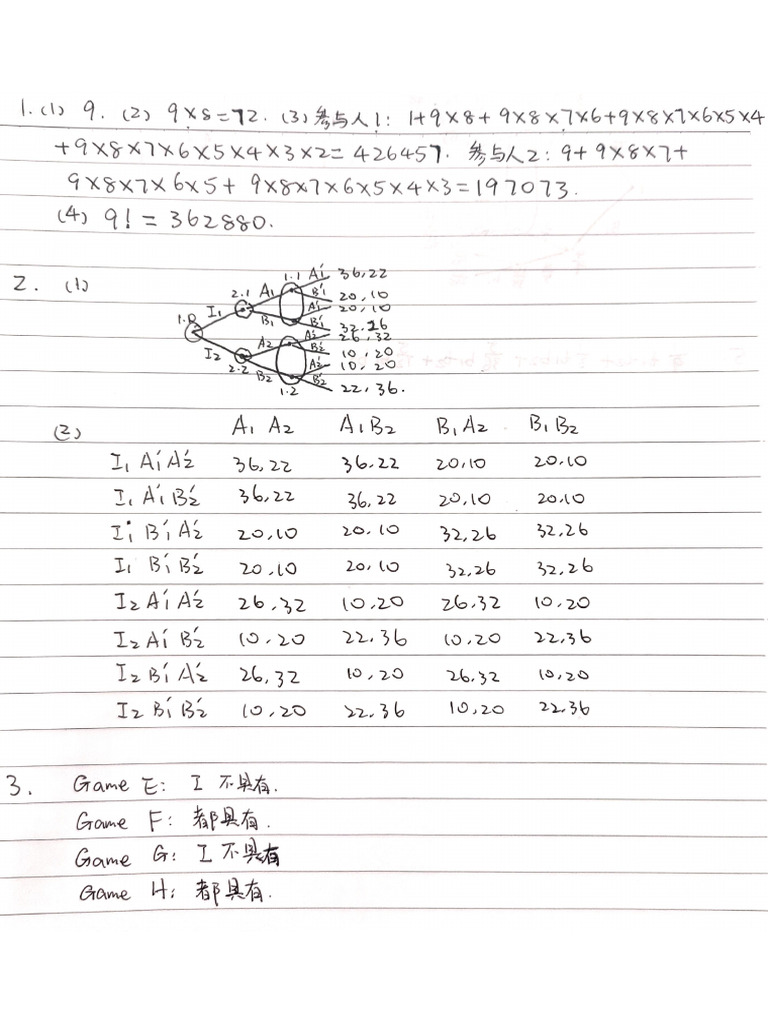 1. (1) 9. (2) 9×8=72. (3) 参与人1: 1+9×8+9×8×7×6+9×8×7×6×5×4
+9×8×7×6×5×4×3×2=426457. 参与人2: 9+9×8×7+
9×8×7×6×5+9×8×7×6×5×4×3=197073.
(4) 9! = 362880.
2. (1)
1.1 A1' 36,22
2.1 A1 B1' 20,10
1.0 I1 A1' 20,10
B1 B1' 32,26
A2 A2' 26,32
I2 B2' 10,20
2.2 B2 A2' 10,20
1.2 B2' 22,36.
(2) A1 A2 A1 B2 B1 A2 B1 B2
I1 A1' A2' 36,22 36,22 20,10 20,10
I1 A1' B2' 36,22 36,22 20,10 20,10
I1 B1' A2' 20,10 20,10 32,26 32,26
I1 B1' B2' 20,10 20,10 32,26 32,26
I2 A1' A2' 26,32 10,20 26,32 10,20
I2 A1' B2' 10,20 22,36 10,20 22,36
I2 B1' A2' 26,32 10,20 26,32 10,20
I2 B1' B2' 10,20 22,36 10,20 22,36
3. Game E: I 不具有.
Game F: 都具有.
Game G: I 不具有
Game H: 都具有.